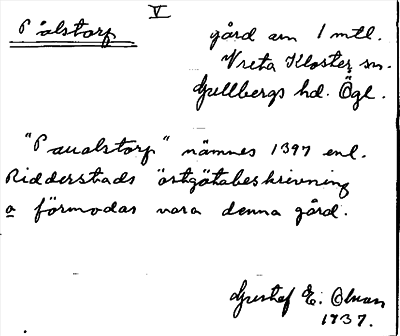 V
Pålstorp gård om 1 mtl.
Vreta Kloster sn.
Gullbergs hd. Ögl.
"Paualstorp" nämnes 1397 enl.
Ridderstads östgötabeskrivning
o förmodas vara denna gård.
Gustaf E. Olsson
1937.